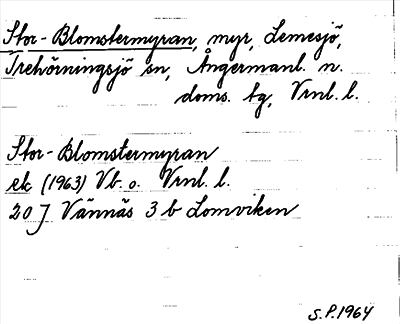 Stor-Blomstermyran, myr, Lemesjö,
Trehörningsjö sn, Ångermanl. n.
doms. tg, Vrnl. l.
Stor-Blomstermyran
ek (1963) Vb. o. Vrnl. l.
20 J Vännäs 3 b Lomviken
S.P. 1964